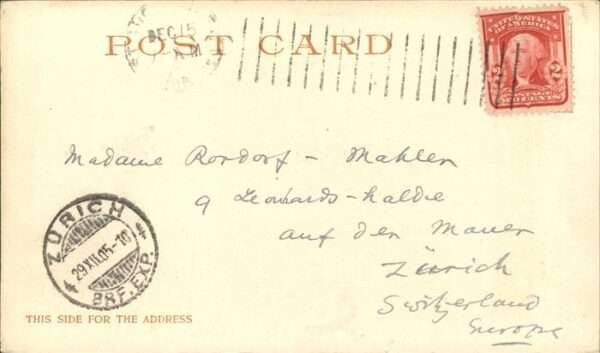 DEC 15
POST CARD
UNITED STATES
OF AMERICA
2 2
POSTAGE
TWO CENTS
Madame Rordorf - Mahler
9 Leonards-halde
auf der Mauer
Zürich
Switzerland
Europe
ZÜRICH
29.XII.05-10
BRF. EXP.
THIS SIDE FOR THE ADDRESS